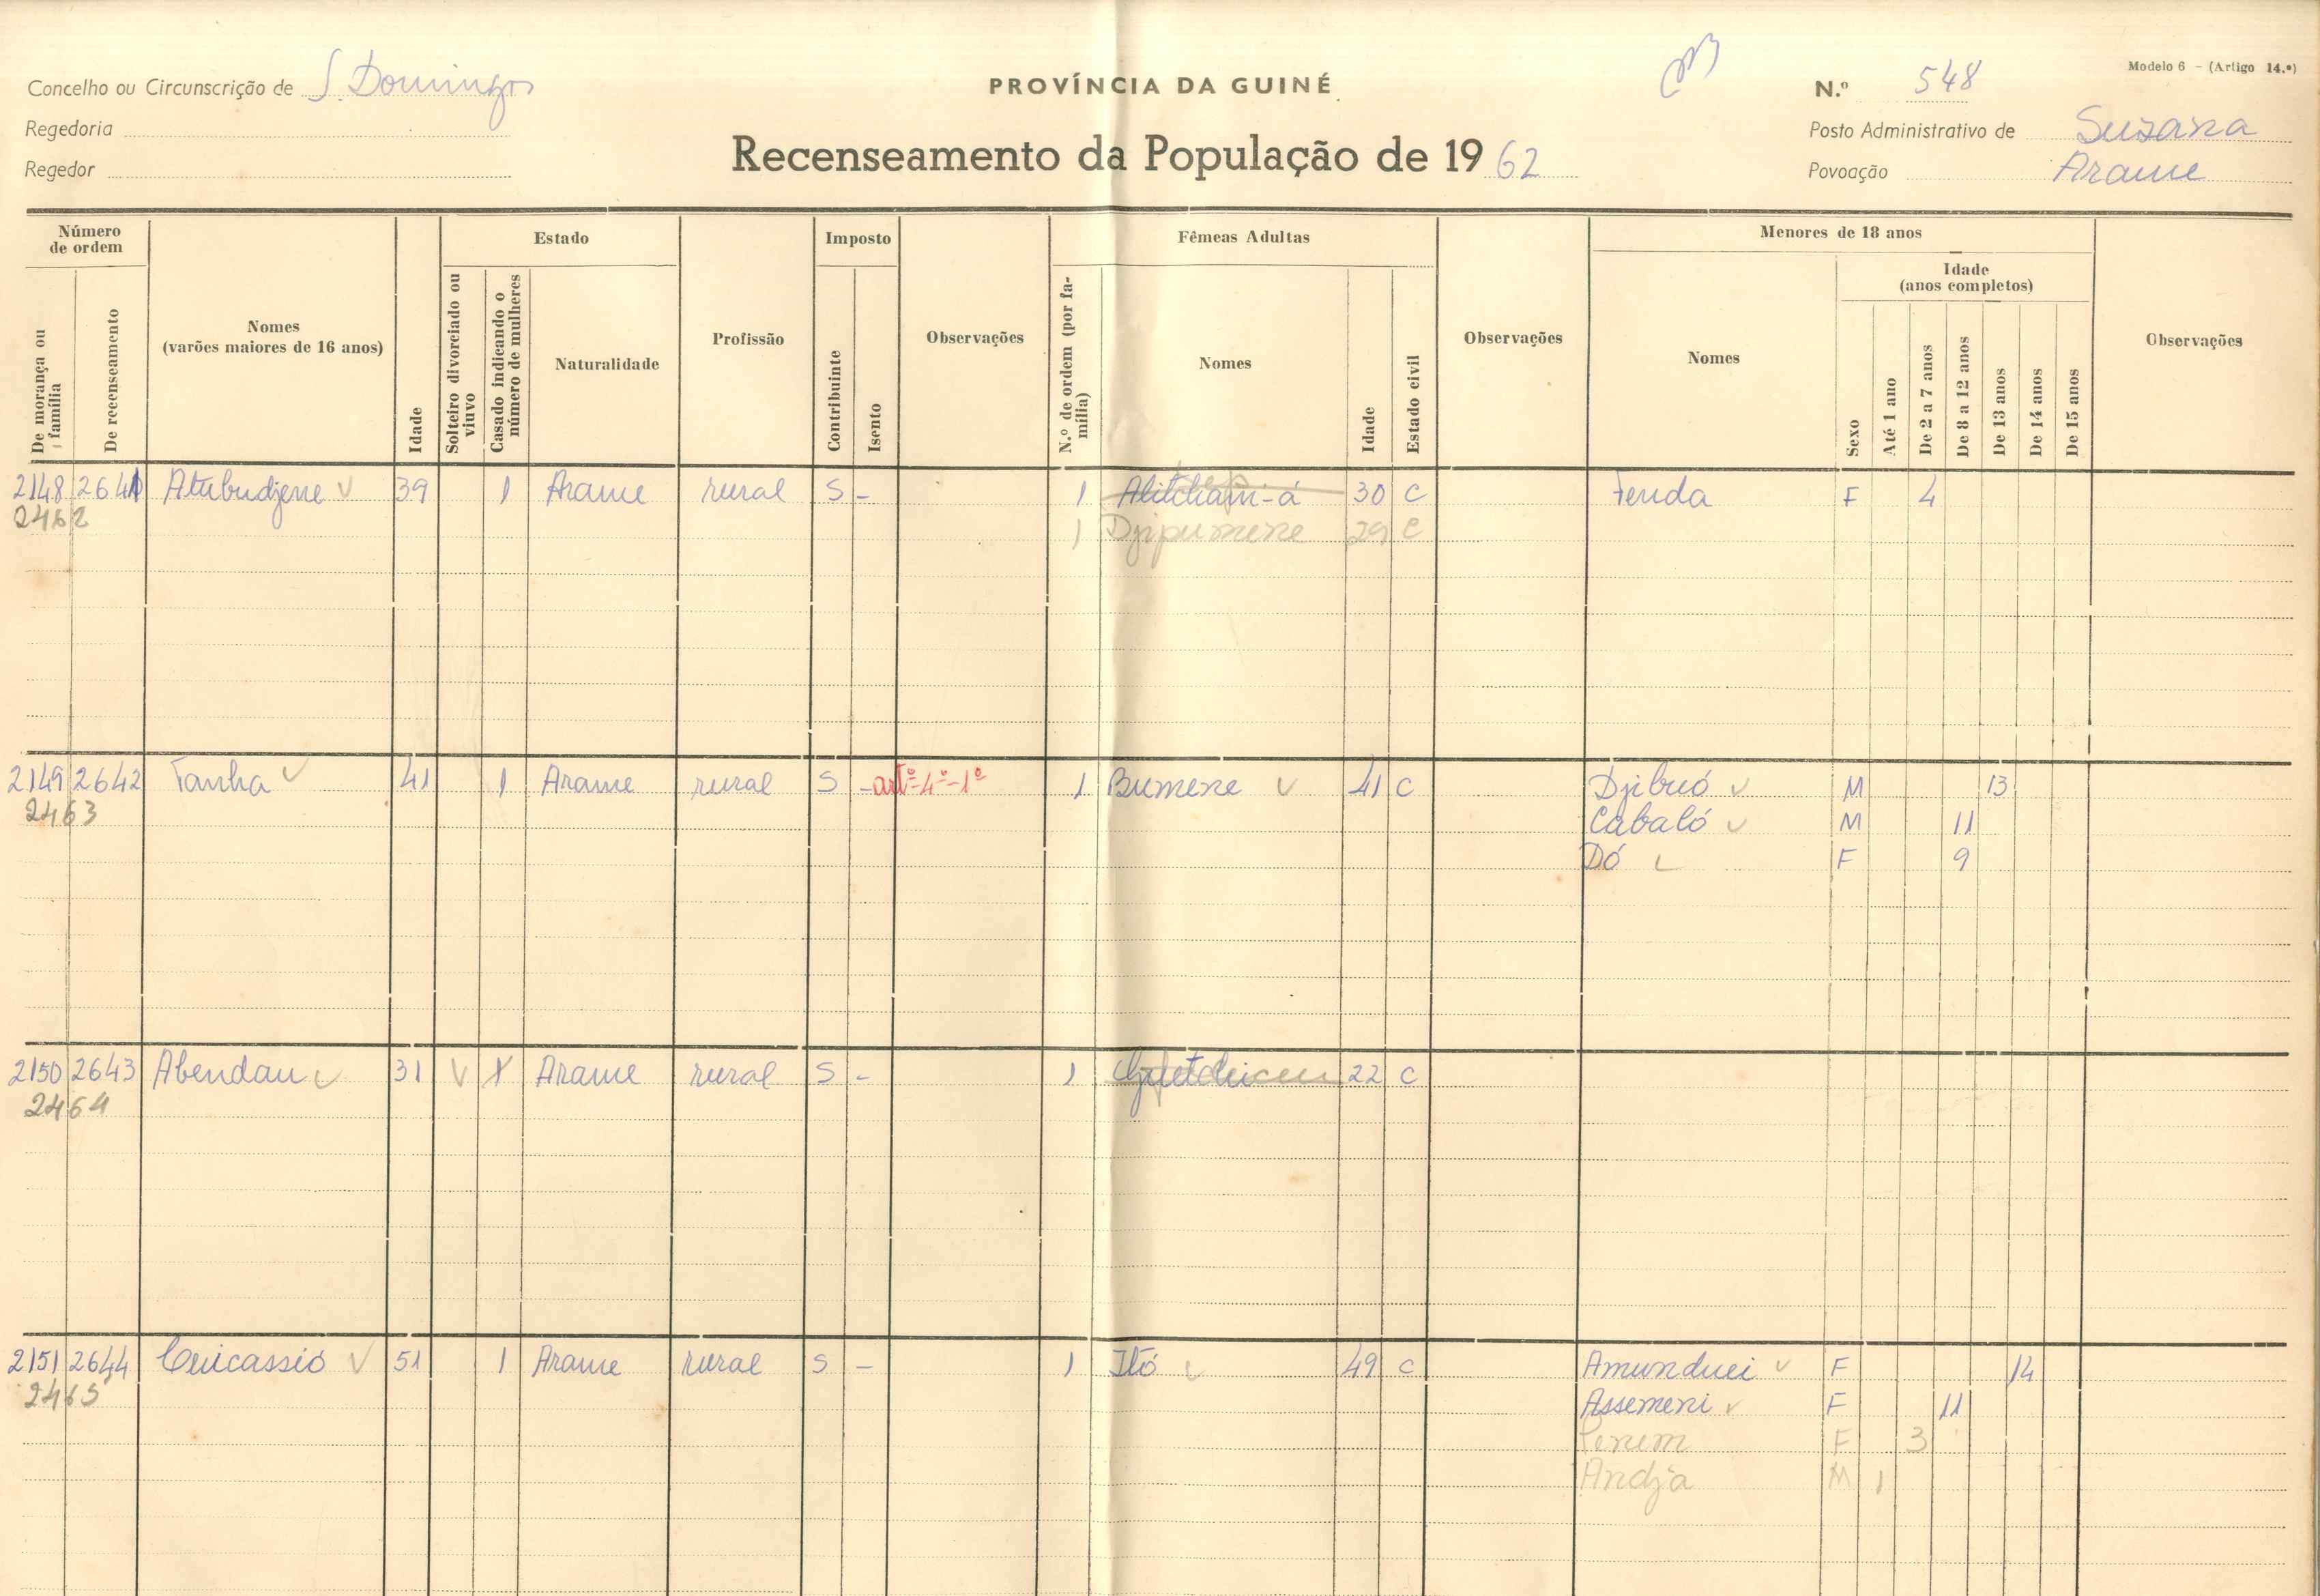 Concelho ou Circunscrição de S. Domingos
Regedoria
Regedor
PROVÍNCIA DA GUINÉ
Recenseamento da População de 1962
Modelo 6 - (Artigo 14.º)
N.º 548
Posto Administrativo de Suzana
Povoação Arame
Número de ordem
De morança ou família
De recenseamento
Nomes
(varões maiores de 16 anos)
Idade
Estado
Solteiro divorciado ou viuvo
Casado indicando o número de mulheres
Naturalidade
Profissão
Imposto
Contribuinte
Isento
Observações
Fêmeas Adultas
N.º de ordem (por família)
Nomes
Idade
Estado civil
Observações
Menores de 18 anos
Nomes
Sexo
Idade
(anos completos)
Até 1 ano
De 2 a 7 anos
De 8 a 12 anos
De 13 anos
De 14 anos
De 15 anos
Observações
2148 2641 Atabudjene 39 1 Arame rural S - 1 Alitcham-á 30 C Fenda F 4
2462 1 Djipumene 29 C
2149 2642 Tanha 41 1 Arame rural S - artº-4º-1º 1 Bumene 41 C Djibuó M 13
2463 Cabaló M 11
Dó F 9
2150 2643 Abendau 31 V X Arame rural S - 1 22 C
2464
2151 2644 Cuicassió 51 1 Arame rural S - 1 Itó 49 C Amunduei F 14
2465 Assemeni F 11
F 3
Andja M 1